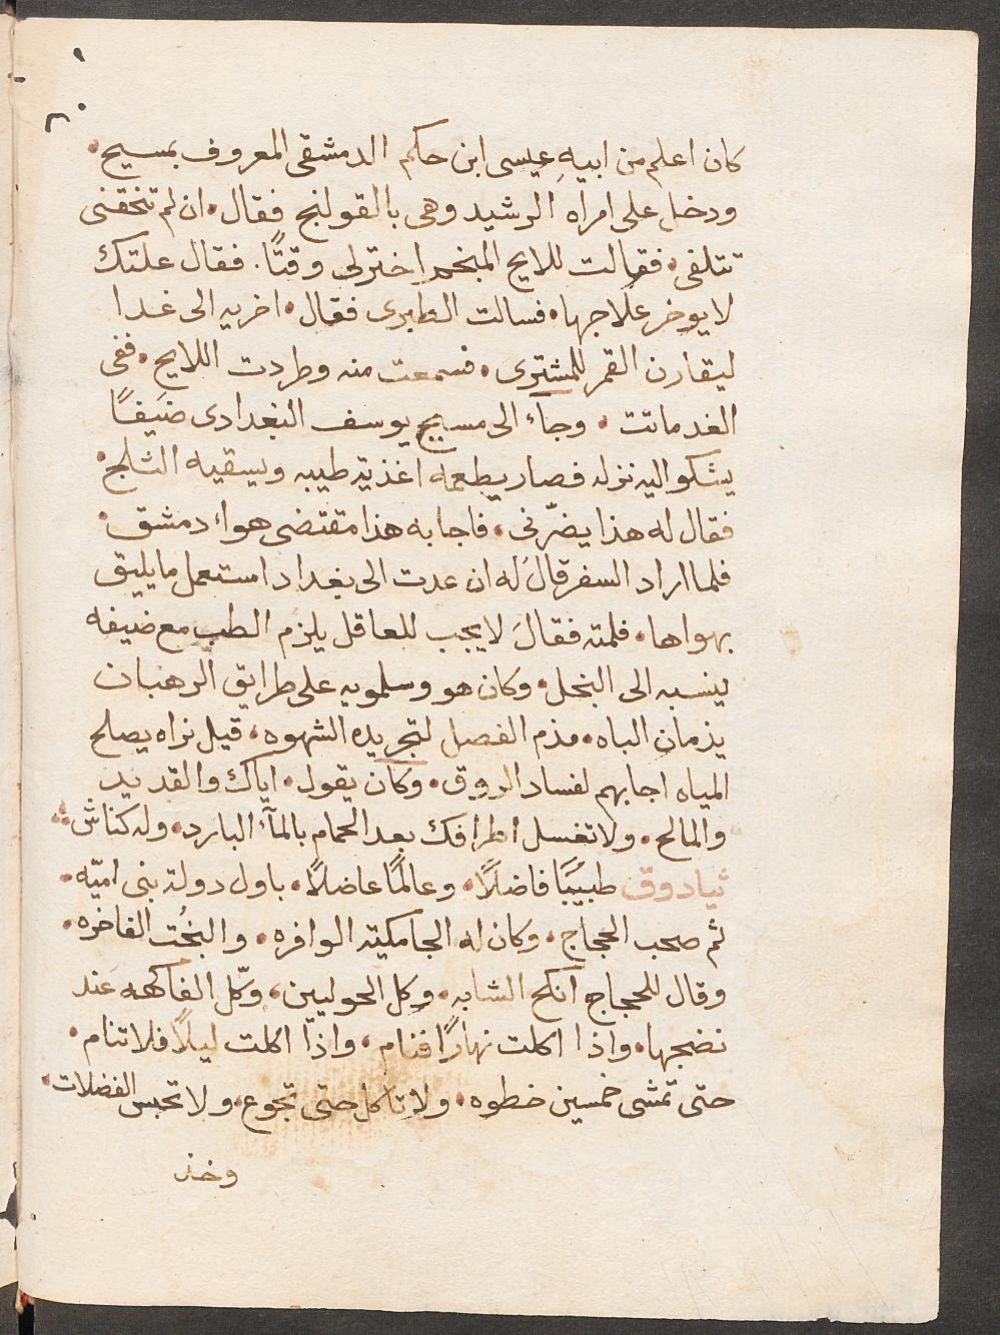 كان اعلم من ابيهِ عيسى ابن حاكم الدمشقى المعروف بمسيح •
ودخل على امراه الرشيد وهى بالقولنج فقال • ان لم تنحقنى
تتلفى • فقالت للايح المنجم اختر لى وقتًا . فقال علتك
لا يوخر علاجها • فسالت الطبرى فقال • اخريه الى غدا
ليقارن القمر للمشترى • فسمعت منه وطردت اللايح • ففى
الغد ماتت • وجاء الى مسيح يوسف البغدادى ضيفًا
يشكو اليه نزله فصار يطعمه اغذية طيبه ويسقيه الثلج •
فقال له هذا يضرّنى • فاجابه هذا مقتضى هواء دمشق •
فلما اراد السفر قال له ان عدت الى بغداد استعمل ما يليق
بهواها • فلمته فقال لا يجب للعاقل يلزم الطب مع ضيفه
ينسبه الى البخل • وكان هو وسلمويه على طرايق الرهبان
يذمان الباه • مذم الفصل لتجريده الشهوه • قيل نراه يصلح
المياه اجابهم لفساد الروق • وكان يقول • اياك والقديد
والمالح • ولا تغسل اطرافك بعد الحمام بالمآء البارد • وله كناش
ثيادوق طبيبًا فاضلًا • وعالمًا عاضلًا • باول دولة بنى اميّه •
ثم صحب الحجاج • وكان له الجامكيته الوافره • والبخُت الفاخره •
وقال للحجاج انكح الشابه • وكل الحوليين • وكّل الفاكهه عند
نضجها • واذا اكلت نهارًا فنام • واذا اكلت ليلًا فلا تنام •
حتى تمشى خمسين خطوه • ولا تاكل حتى تجوع • ولا تحبس الفضلات •
وخذ